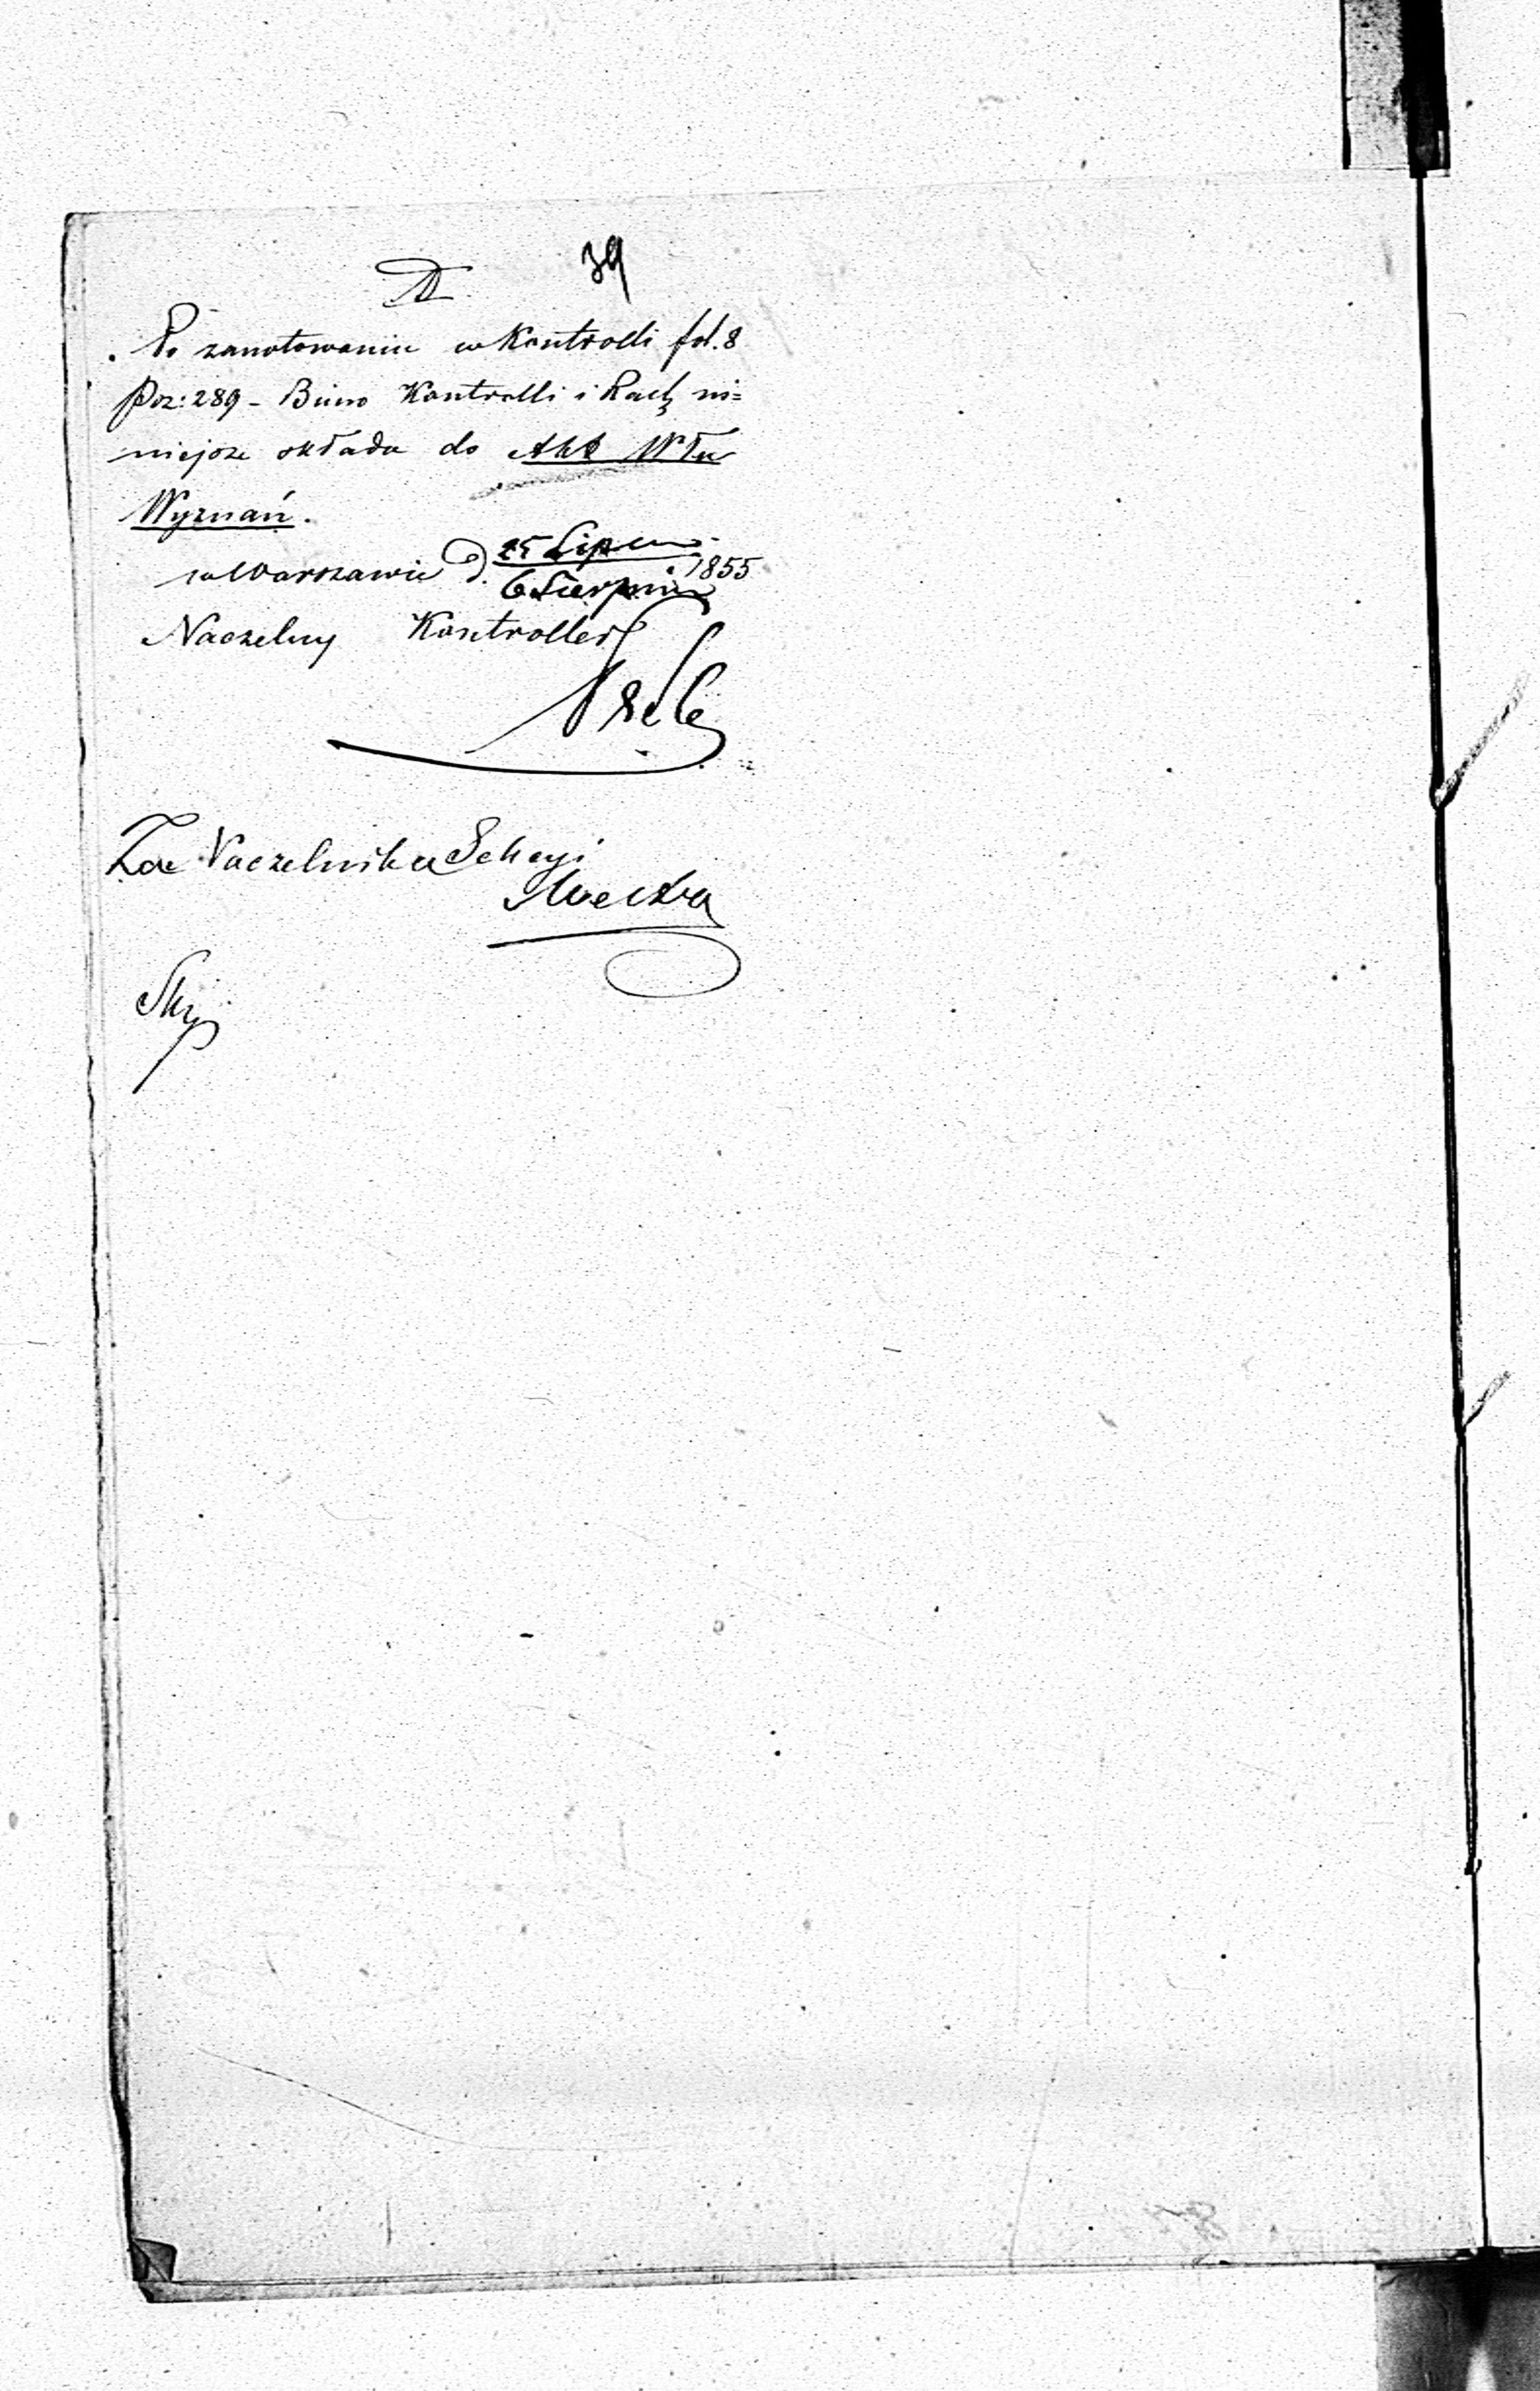 39
Po zanotowaniu w Kontrolli fol. 8
Poz: 289 - Biuro Kontrolli i Rach ni=
niejsze składa do Akt Włu
Wyznań.
w Warszawie d. 25 Lipca
6 Sierpnia 1855
Naczelny Kontroller
Za Naczelnika Sekcyi